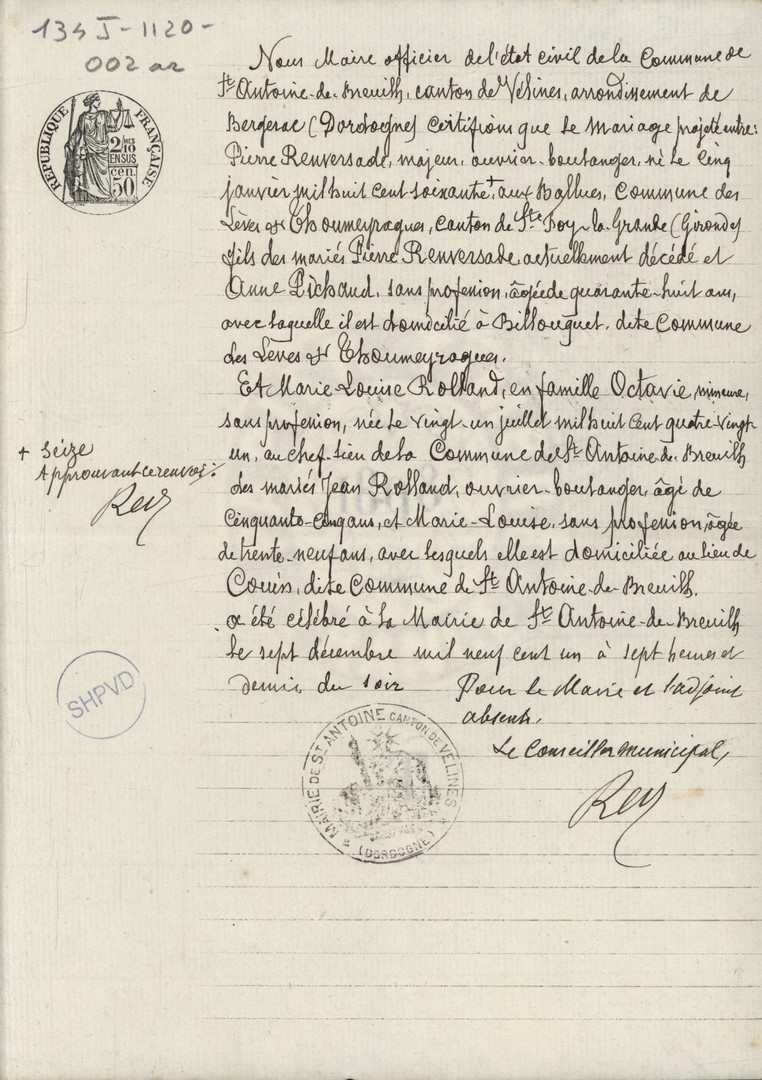 134 J-1120-
002 az
RÉPUBLIQUE FRANÇAISE
2/10
EN SUS
50 cen
Nous Maire officier de l'état civil de la Commune de
St Antoine-de-Breuilh, canton de Vélines, arrondissement de
Bergerac (Dordogne) Certifions que le mariage projeté entre:
Pierre Renversade, majeur, ouvrier-boulanger, né le cinq
janvier mil huit cent soixante + aux Ballues, Commune des
Lèves & Thoumeyragues, canton de Ste Foy-la-Grande (Gironde)
fils des mariés Pierre Renversade actuellement décédé et
Anne Pichaud, sans profession, âgée de quarante-huit ans,
avec laquelle il est domicilié à Billouquet, dite Commune
des Lèves & Thoumeyragues.
Et Marie-Louise Rolland, en famille Octavie, mineure,
sans profession, née le vingt-un juillet mil huit cent quatre-vingt-
un, au chef-lieu de la Commune de St Antoine-de-Breuilh
des mariés Jean Rolland, ouvrier-boulanger, âgé de
cinquante-cinq ans, et Marie-Louise, sans profession, âgée
de trente-neuf ans, avec lesquels elle est domiciliée au lieu de
dite Commune de St Antoine-de-Breuilh.
a été célébré à la Mairie de St Antoine-de-Breuilh
le sept décembre mil neuf cent un à sept heures et
demie du soir
Pour le Maire et l'adjoint
absents,
Le Conseiller municipal,
Rey
+ seize
Approuvant ce renvoi
Rey
SHPVD
MAIRIE DE ST ANTOINE CANTON DE VÉLINES
(DORDOGNE)